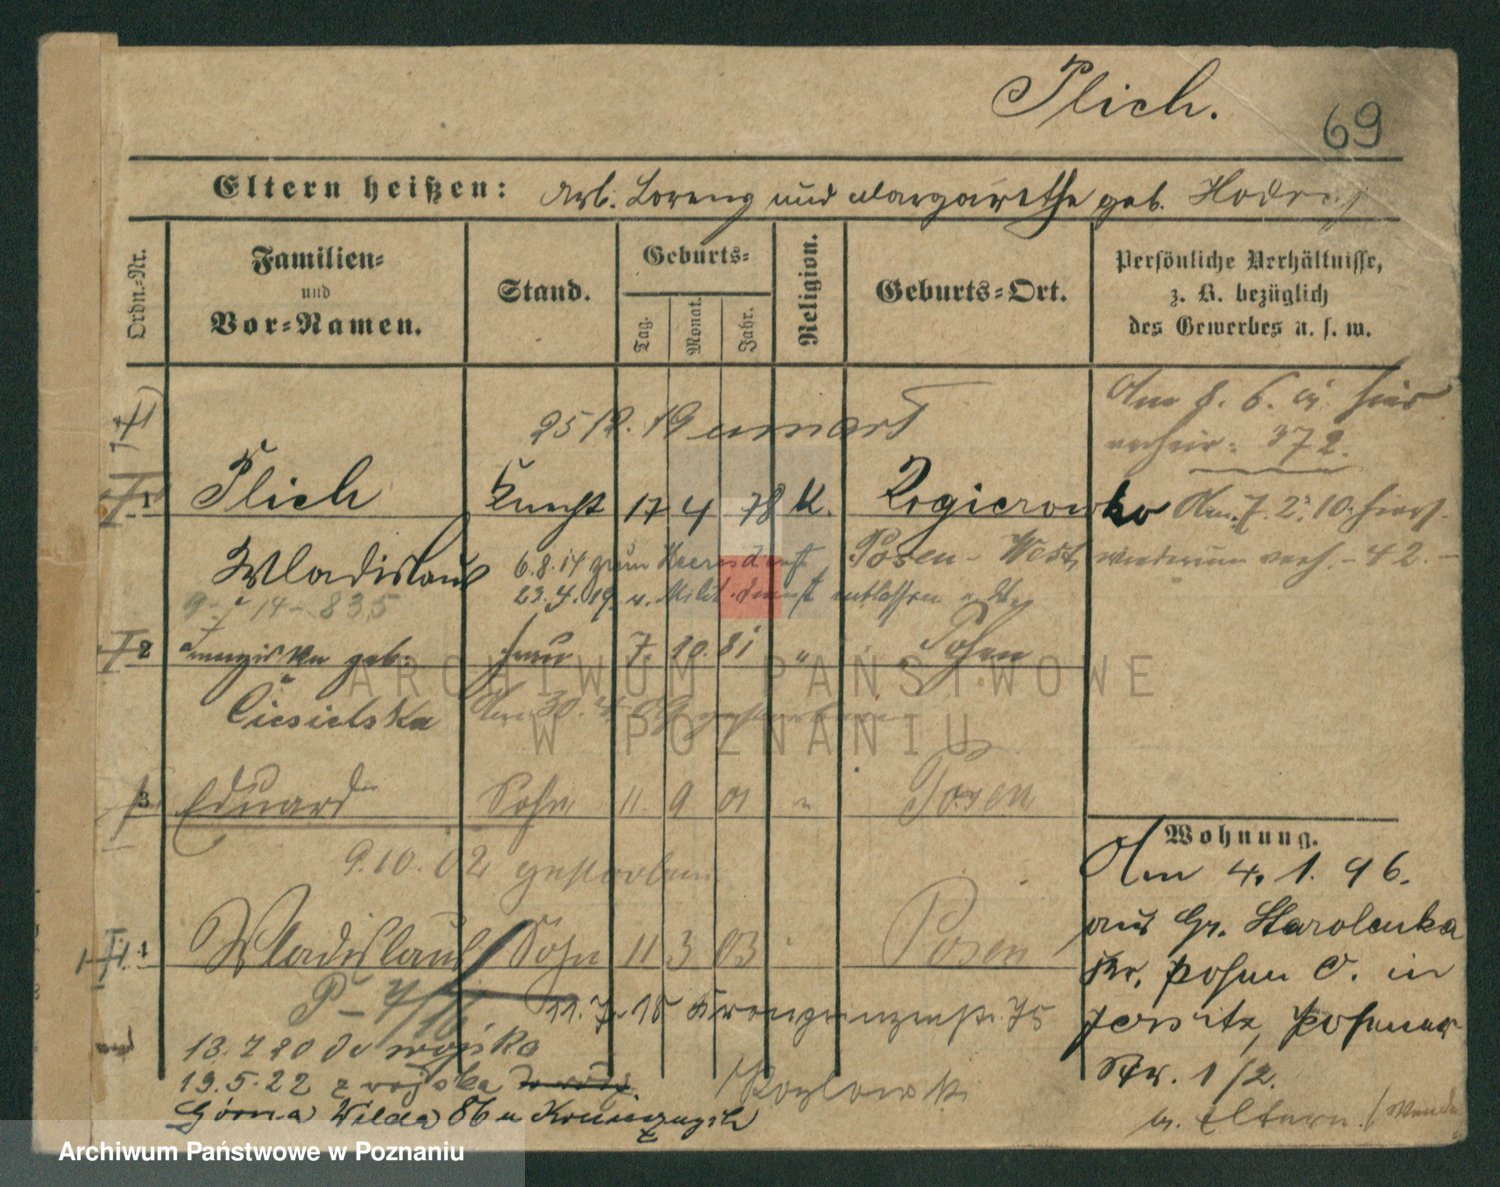 Plich.
69
Eltern heißen: Arb. Lorenz und Margarethe geb.
Ordn.-Nr.
Familien- und Vor-Namen.
Stand.
Geburts-
Tag. Monat. Jahr.
Religion.
Geburts-Ort.
Persönliche Verhältnisse, z. B. bezüglich des Gewerbes u. s. w.
Am 8. 6. hier
372.
1 Plich Knecht 17 4 78 K. Rogierowko
Am 7. 2. 10. hiers.
Wladislaus
6.8.14 zum Heeresdienst Posen - West,
wiederum verh. - 42. -
9 - 14 - 835
23.4.19 v. Milit.dienst entlassen
2 Franziska geb. Frau 7. 10. 81 " Posen
Ciesielska
Am 30. 4. 09 gestorben
3 Eduard Sohn 11. 9 01 " Posen
9.10.02 gestorben
Wohnung.
Am 4. 1. 96.
aus Gr. Starolenka
Kr. Posen O. in
Jersitz, Posener
Str. 1/2.
b. Eltern.
4 Wladislaus Sohn 11 3 03 Posen
11.7.18 Kronprinzenstr. 75
13.7.20 do wojska
19.5.22 z wojska
Górna Wilda 86 u
ARCHIWUM PAŃSTWOWE
W POZNANIU
Archiwum Państwowe w Poznaniu